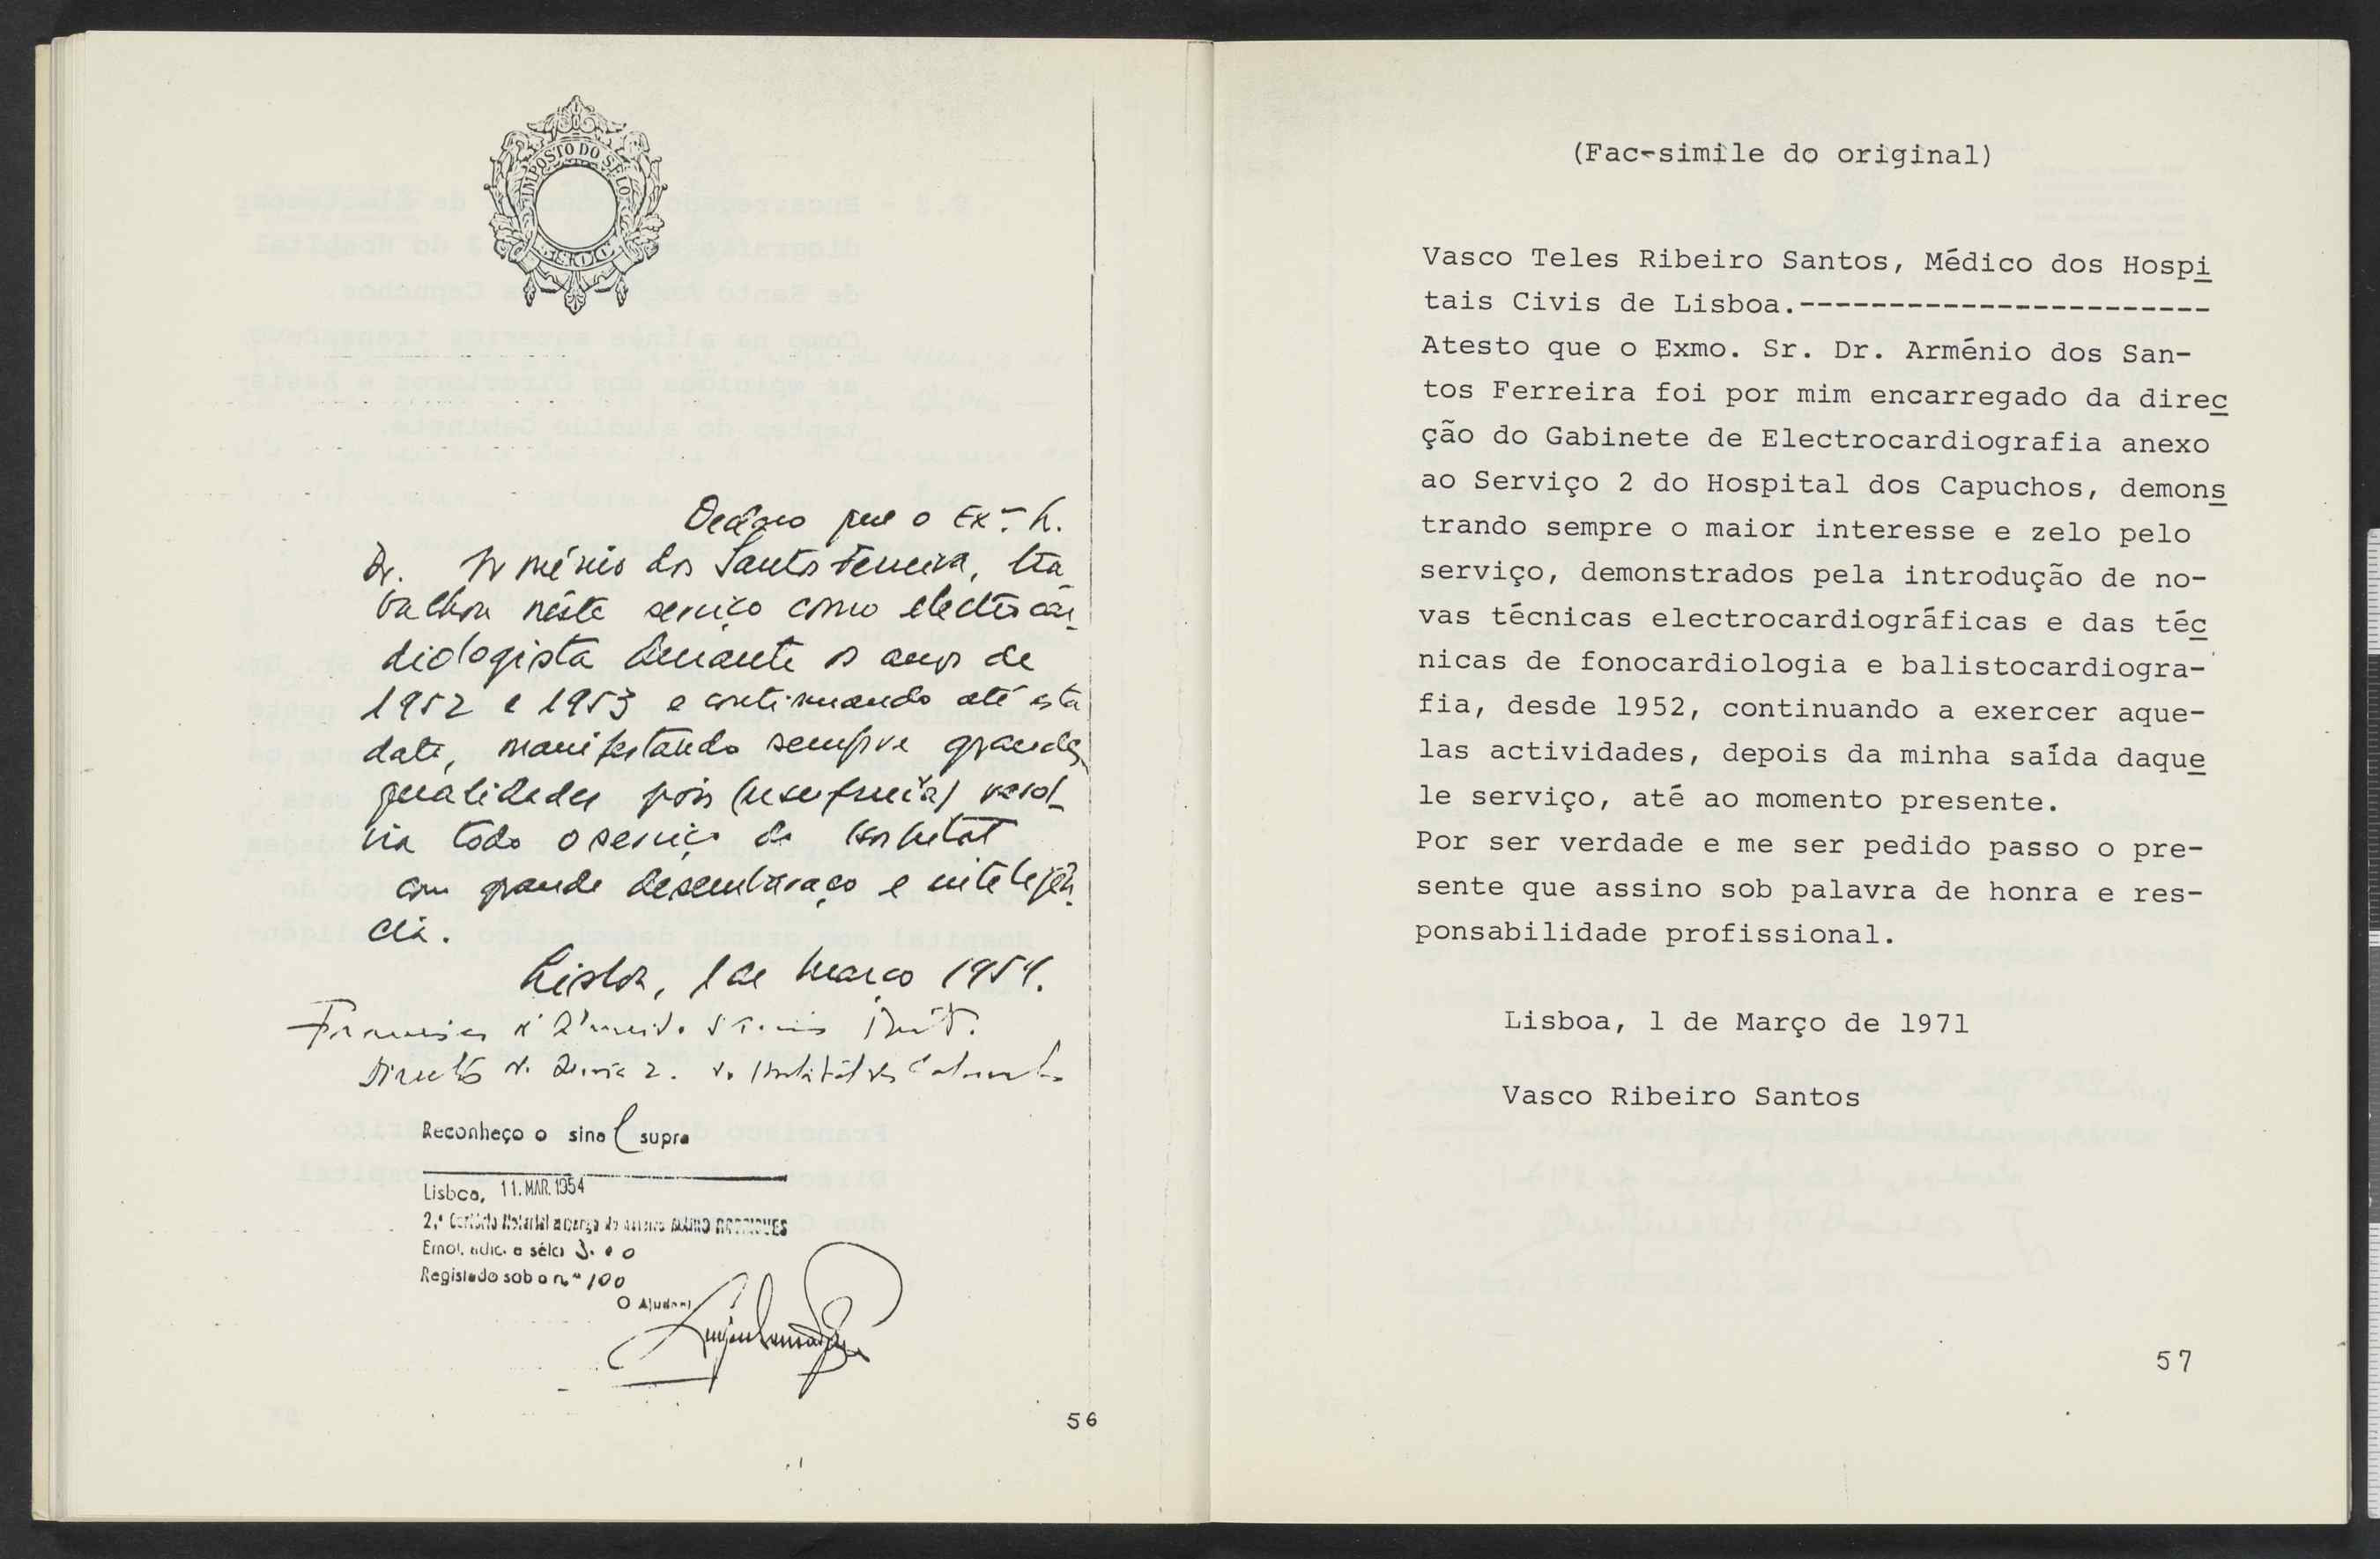 IMPOSTO DO SELO
Declaro que o Exmo. Sr.
Dr. Arménio dos Santos Ferreira, tra
balhou néste serviço como electrocar
diologista durante os anos de
1952 e 1953 e continuando até esta
data, manifestando sempre grandes
qualidades pois (usufruia) resol
via todo o serviço do Hospital
com grande desembaraço e inteligên
cia.
Lisboa, 1 de Março 1954.
Francisco
Director do Serviço 2. do Hospital dos Capuchos
Reconheço o sinal supra
Lisboa, 11. MAR. 1954
2.º Cartório Notarial a cargo do RODRIGUES
Emol. adic. e sêlo 3.00
Registado sob o n.º 100
O Ajudante
56
(Fac-simile do original)
Vasco Teles Ribeiro Santos, Médico dos Hospi
tais Civis de Lisboa.-----------------------
Atesto que o Exmo. Sr. Dr. Arménio dos San-
tos Ferreira foi por mim encarregado da direc
ção do Gabinete de Electrocardiografia anexo
ao Serviço 2 do Hospital dos Capuchos, demons
trando sempre o maior interesse e zelo pelo
serviço, demonstrados pela introdução de no-
vas técnicas electrocardiográficas e das téc
nicas de fonocardiologia e balistocardiogra-
fia, desde 1952, continuando a exercer aque-
las actividades, depois da minha saída daque
le serviço, até ao momento presente.
Por ser verdade e me ser pedido passo o pre-
sente que assino sob palavra de honra e res-
ponsabilidade profissional.
Lisboa, 1 de Março de 1971
Vasco Ribeiro Santos
57